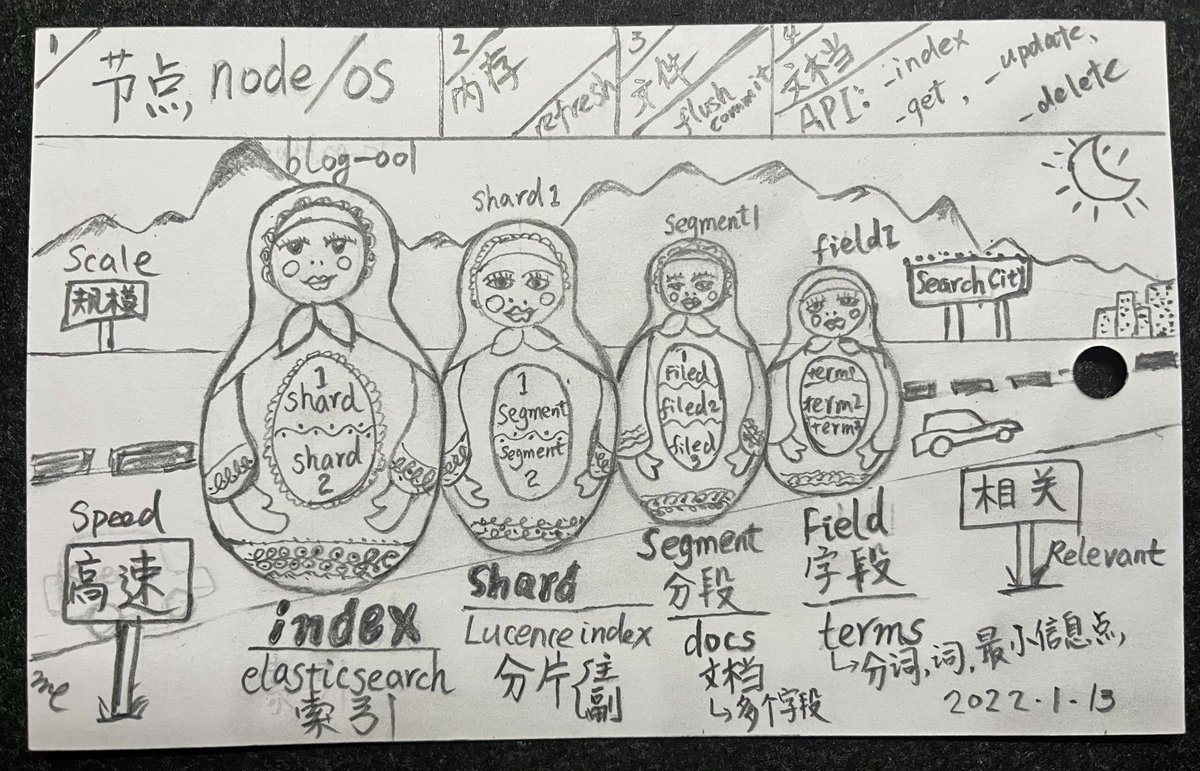 1
节点 node/os
2
内存
refresh
3
文件
flush
commit
4
文档
API: _index
_get, _update,
_delete
blog-001
shard1
segment1
field1
Scale
规模
Search City
1
shard
shard
2
1
Segment
Segment
2
1
Filed
filed2
filed
3
term1
term2
term3
Speed
高速
相关
Relevant
index
elasticsearch
索引
Shard
Lucence index
分片{主
副
Segment
分段
docs
文档
↳多个字段
Field
字段
terms
↳分词,词,最小信息点,
2022.1.13